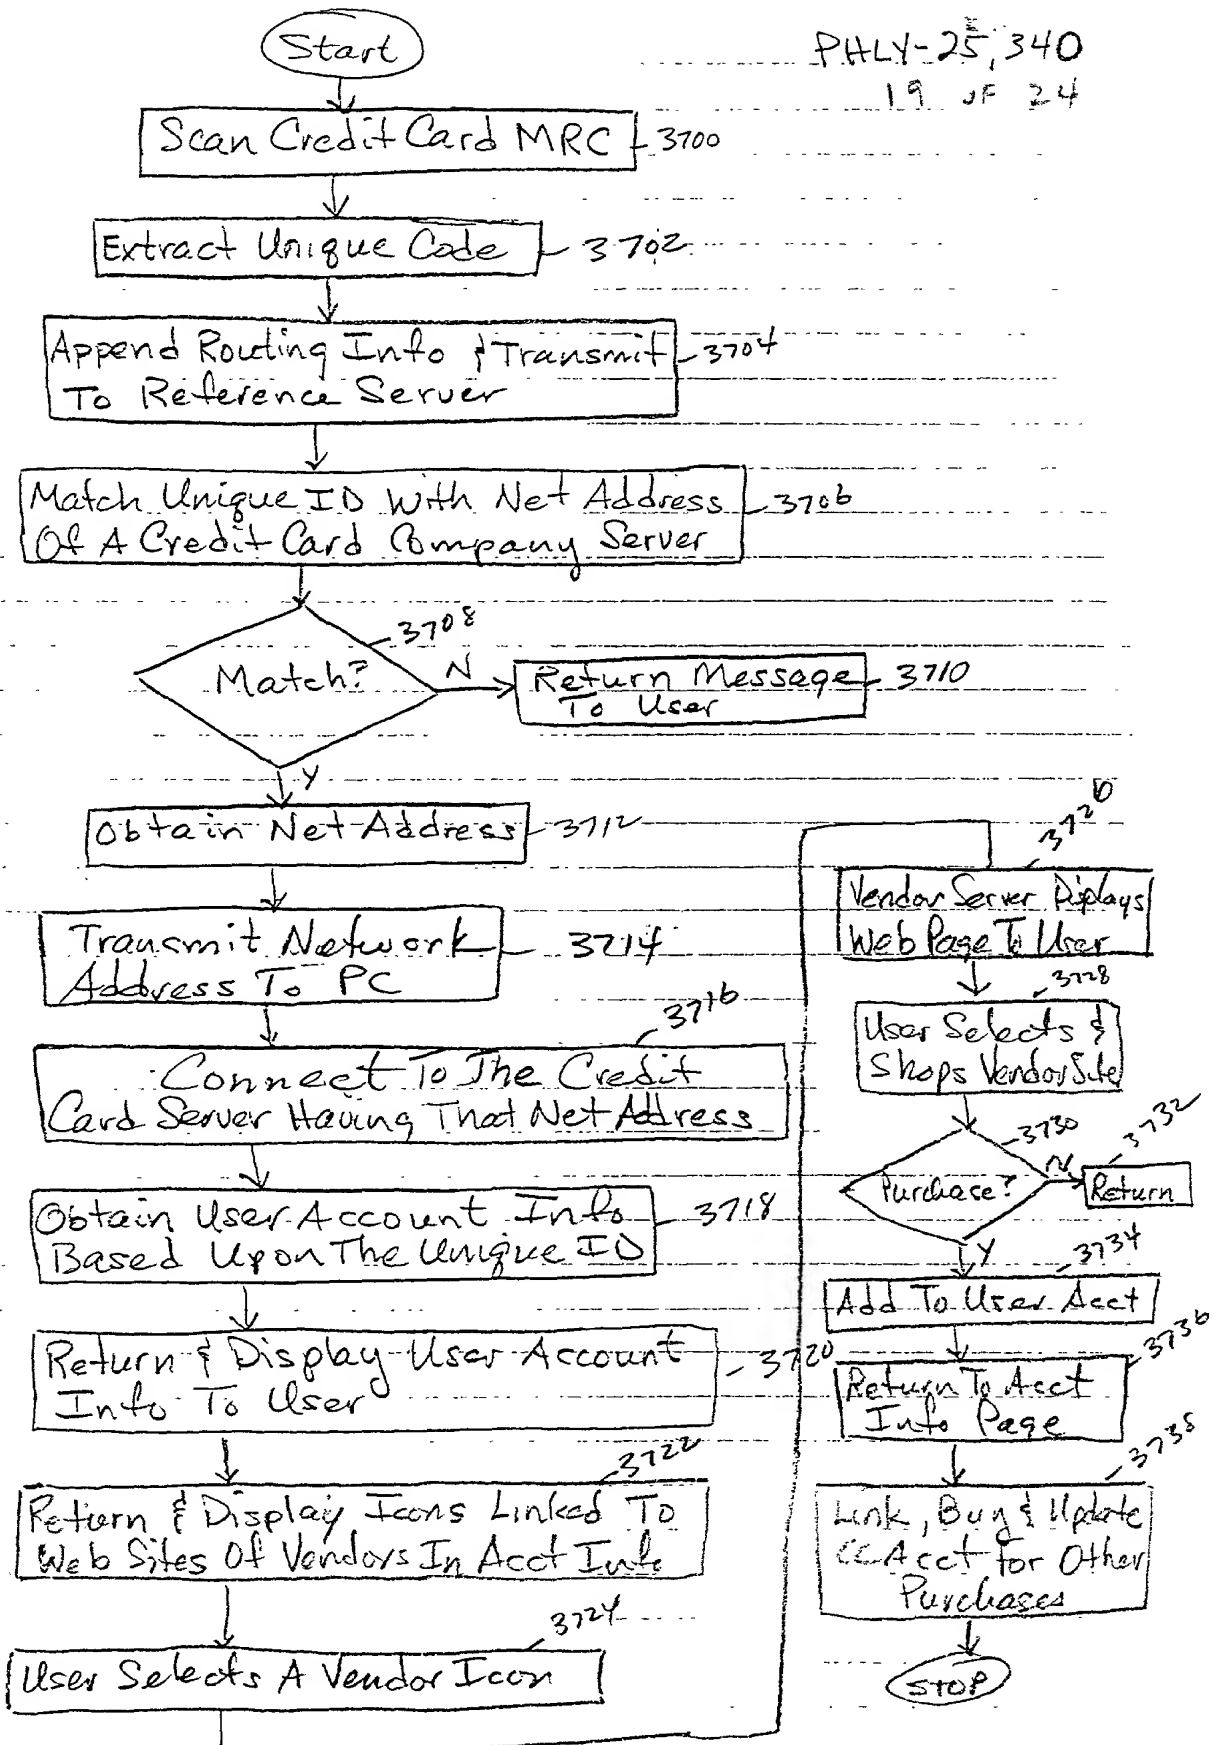 PHLY-25,340
19 of 24
Start
Scan Credit Card MRC
3700
Extract Unique Code
3702
Append Routing Info & Transmit
To Reference Server
3704
Match Unique ID With Net Address
Of A Credit Card Company Server
3706
Match?
3708
N
Return Message
To User
3710
Y
Obtain Net Address
3712
Transmit Network
Address To PC
3714
Connect To The Credit
Card Server Having That Net Address
3716
Obtain User Account Info
Based Upon The Unique ID
3718
Return & Display User Account
Info To User
3720
Return & Display Icons Linked To
Web Sites Of Vendors In Acct Info
3722
User Selects A Vendor Icon
3724
Vendor Server Displays
Web Page To User
3726
User Selects &
Shops Vendor Site
3728
Purchase?
3730
N
Return
3732
Y
Add To User Acct
3734
Return To Acct
Info Page
3736
Link, Buy & Update
CC Acct for Other
Purchases
3738
STOP